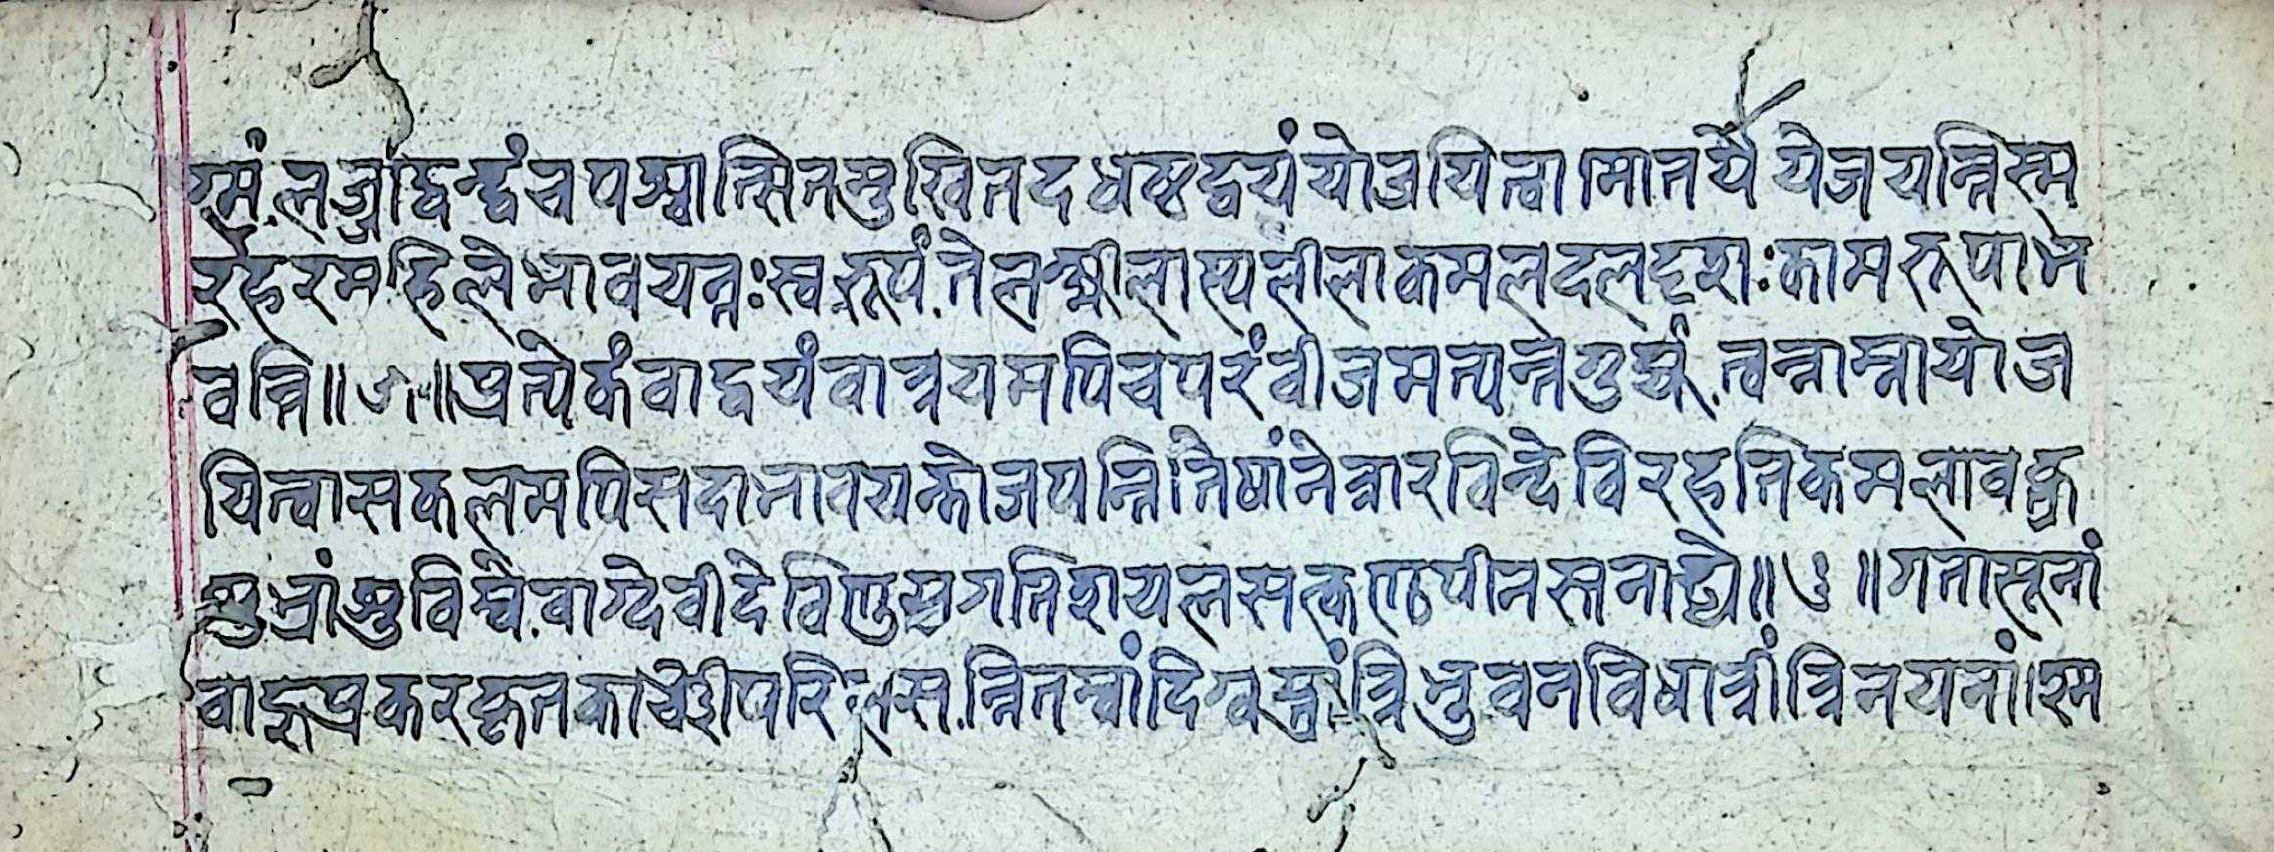 ग्मं लज्जाद्वन्द्वं च पश्चात्स्मितमुखि तदधष्ठद्वयं योजयित्वा मातर्ये ये जयन्ति स्म
रहरमहिले भावयन्तः स्वरूपं ते लक्ष्मीलास्यलीलाकमलदलदृशः कामरूपा भ
वन्ति ॥ ५ ॥ प्रत्येकं वा द्वयं वा त्रयमपि च परं बीजमत्यन्तगुह्यं त्वन्नाम्ना योज
यित्वा सकलमपि सदा भावयन्तो जपन्ति तेषां नेत्रारविन्दे विरहति कमला वक्त्र
शुभ्रांशुबिम्बे वाग्देवी देवि मुण्डस्रगतिशयलसत्कण्ठपीनस्तनाढ्ये ॥ ६ ॥ गतासूनां
बाहुप्रकरकृतकाञ्चीपरिलसन्नितम्बां दिग्वस्त्रां त्रिभुवनविधात्रीं त्रिनयनां श्म